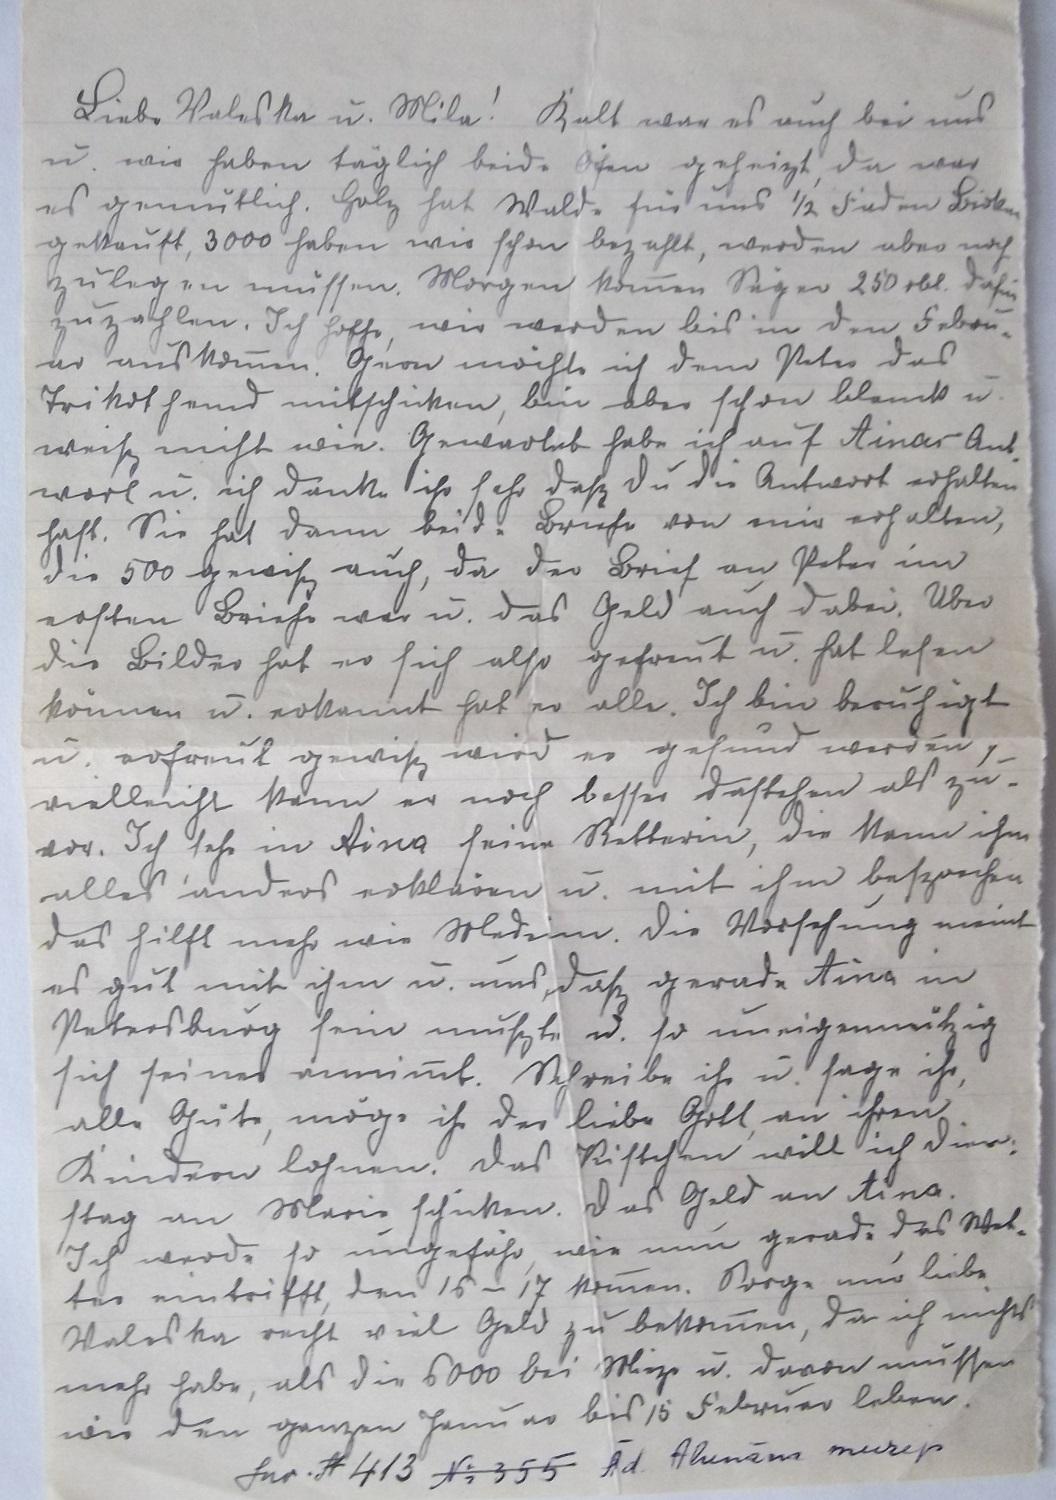 Liebe Valeska u. Mila! Kalt war es auch bei uns
u. wir haben täglich beide Öfen geheizt, da war
es gemütlich. Holz hat Walde für uns 1/2 Faden Birken
gekauft, 3000 haben wir schon bezahlt, werden aber noch
zulegen müssen. Morgen kom̄en Säger 250 rbl. dafür
zuzahlen. Ich hoffe, wir werden bis in den Febru-
ar auskom̄en. Gern möchte ich dem Peter das
Trikothemd mitschicken, bin aber schon blank u.
weiß nicht wie. Gewartet habe ich auf Ainas Ant-
wort u. ich danke ihr sehr daß du die Antwort erhalten
hast. Sie hat dann beide Briefe von mir erhalten,
die 500 gewiß auch, da der Brief an Peter im
ersten Briefe war u. das Geld auch dabei. Über
die Bilder hat er sich also gefreut u. hat lesen
können u. erkannt hat er alle. Ich bin beruhigt
u. erfreut gewiß wird er gesund werden,
vielleicht kann er noch besser dastehen als zu-
vor. Ich sehe in Aina seine Retterin, die kann ihm
alles anders erklären u. mit ihm besprechen
das hilft mehr wie Medizin. Die Vorsehung meint
es gut mit ihm u. uns, daß gerade Aina in
Petersburg sein mußte u. so uneigennützig
sich seiner annim̄t. Schreibe ihr u. sage ihr,
alle Güte, möge ihr der liebe Gott, an ihren
Kindern lohnen. Das Kistchen will ich Dien-
stag an Marie schicken. Das Geld an Aina.
Ich werde so ungefähr, wie nun gerade das Wet-
ter eintrifft, den 15 – 17 kom̄en. Sorge nur liebe
Valeska recht viel Geld zu bekom̄en, da ich nichts
mehr habe, als die 6000 bei Mize u. davon müssen
wir den ganzen Januar bis 15 Februar leben.
413 № 355 Ad.